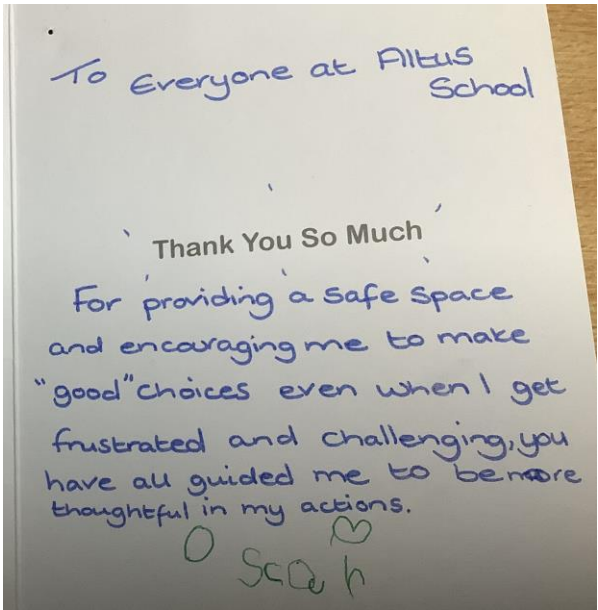 To Everyone at Altus
School
Thank You So Much
For providing a safe space
and encouraging me to make
"good" choices even when I get
frustrated and challenging, you
have all guided me to be more
thoughtful in my actions.